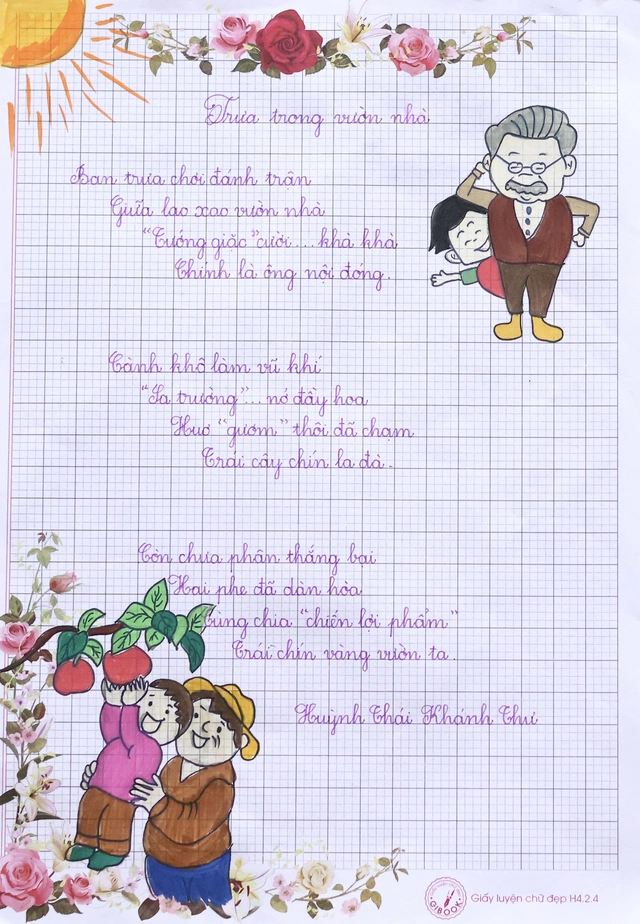 Trưa trong vườn nhà
Ban trưa chơi đánh trận
Giữa lao xao vườn nhà
"Tướng giặc" cười... khà khà
Chính là ông nội đóng.
Cành khô làm vũ khí
"Sa trường"... nở đầy hoa
Huơ "gươm" thôi đã chạm
Trái cây chín la đà.
Còn chưa phân thắng bại
Hai phe đã dàn hòa
Cùng chia "chiến lợi phẩm"
Trái chín vàng vườn ta.
Huỳnh Thái Khánh Thư
GIBOOK
Giấy luyện chữ đẹp H4.2.4